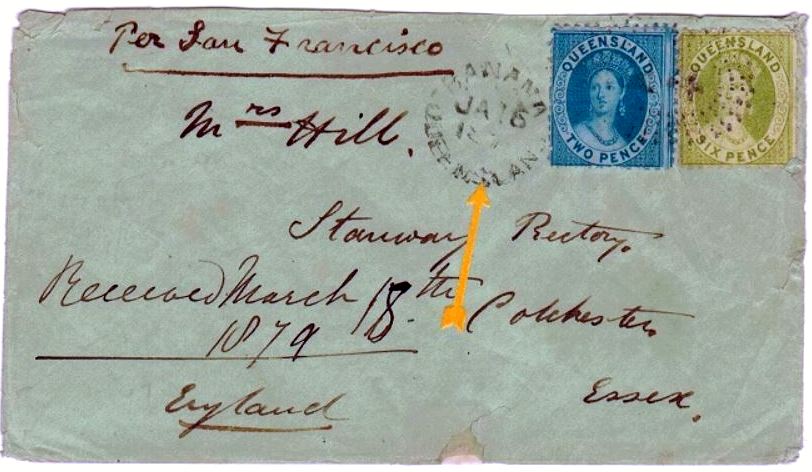 Per San Francisco
QUEENSLAND
TWO PENCE
QUEENSLAND
SIX PENCE
BANANA
JA 16
QUEENSLAND
Mrs Hill.
Stanway Rectory.
Received March 18th
1879
Colchester
England
Essex.